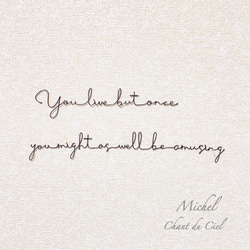 You live but once
you might as well be amusing
Michel
Chant du Ciel